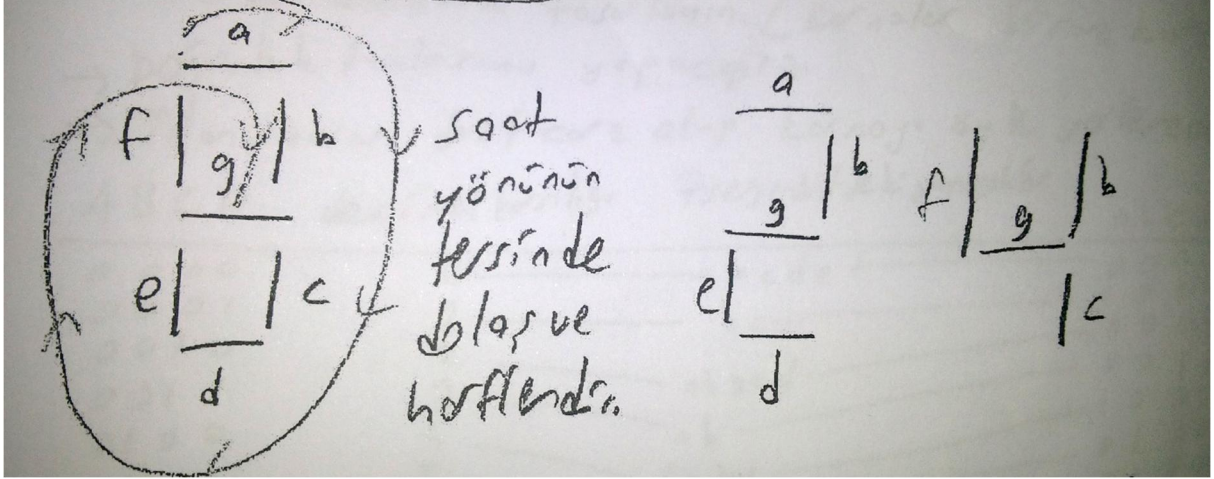 a
f g b
e c
d
saat
yönünün
tersinde
dolaş ve
harflendir.
a
b
g
e
d
f g b
c